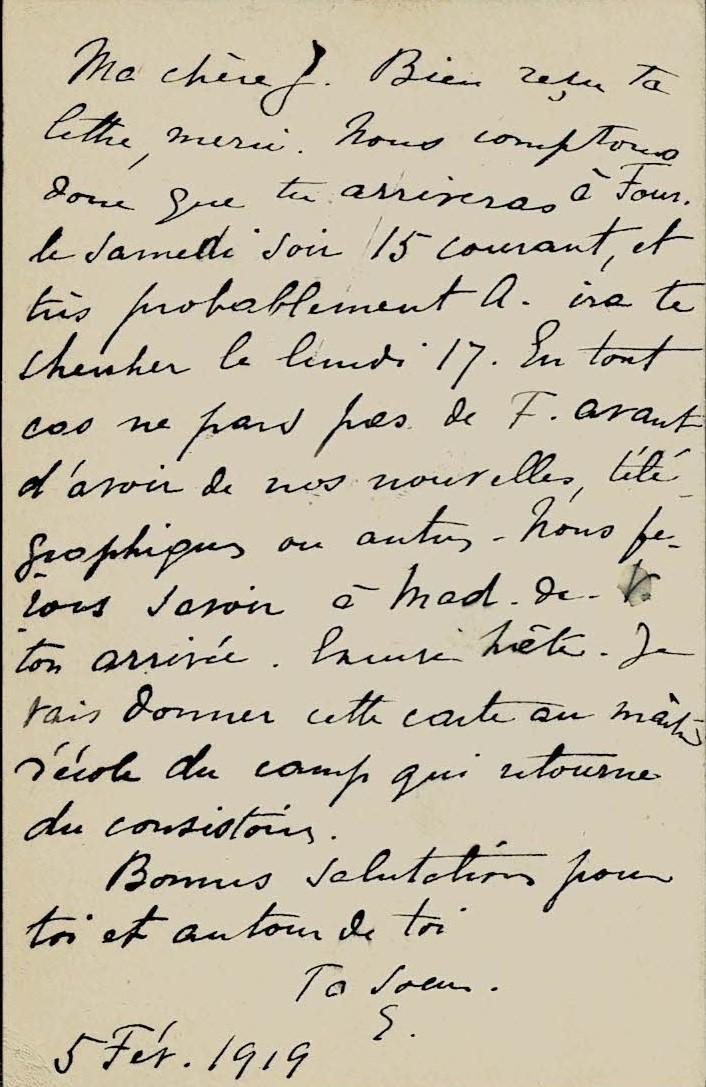 Ma chère J. Bien reçu ta
lettre, merci. Nous comptons
donc que tu arriveras à Four.
le samedi soir 15 courant, et
très probablement A. ira te
chercher le lundi 17. En tout
cas ne pars pas de F. avant
d'avoir de nos nouvelles, télé-
graphiques ou autres - Nous fe-
rons savoir à Mad. de
ton arrivée. hâte. Je
vais donner cette carte au maître
d'école du camp qui retourne
du consistoire.
Bonnes salutations pour
toi et autour de toi
Ta soeur.
E.
5 Fév. 1919